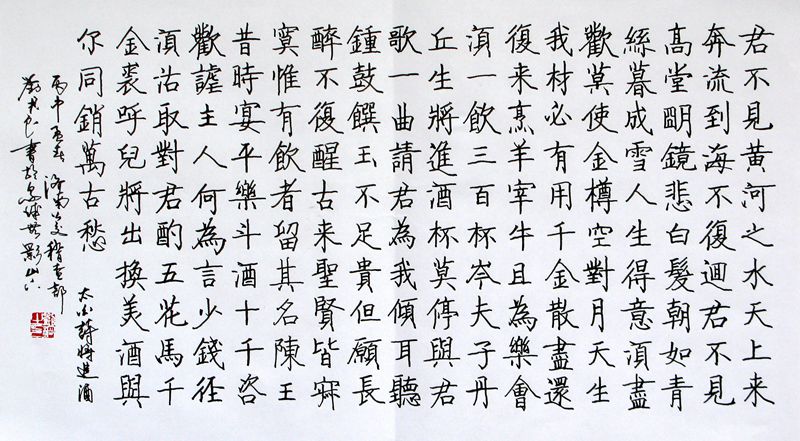 君不見黃河之水天上来
奔流到海不復迴君不見
高堂朙鏡悲白髮朝如青
絲暮成雪人生得意湏盡
歡莫使金樽空對月天生
我材必有用千金散盡還
復来烹羊宰牛且為樂會
湏一飲三百杯岑夫子丹
丘生將進酒杯莫停與君
歌一曲請君為我傾耳聽
鍾鼓饌玉不足貴但願長
醉不復醒古来聖賢皆寂
寞惟有飲者留其名陳王
昔時宴平樂斗酒十千恣
歡謔主人何為言少錢径
湏沽取對君酌五花馬千
金裘呼兒將出換美酒與
尔同銷萬古愁
太白詩將進酒
丙申
書於泉城